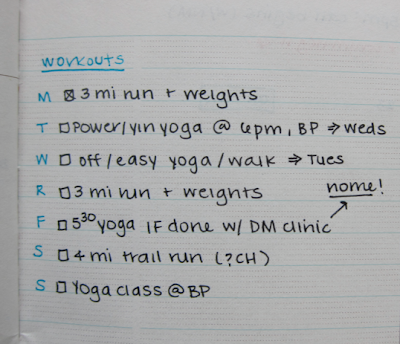 workouts
M ☒ 3 mi run + weights
T ☐ Power/yin yoga @ 6pm, BP ⇒ Weds
W ☐ off/easy yoga/walk ⇒ Tues
R ☐ 3 mi run + weights
nome!
F ☐ 5³⁰ yoga IF done w/ DM clinic
S ☐ 4 mi trail run (?CH)
S ☐ Yoga class @ BP